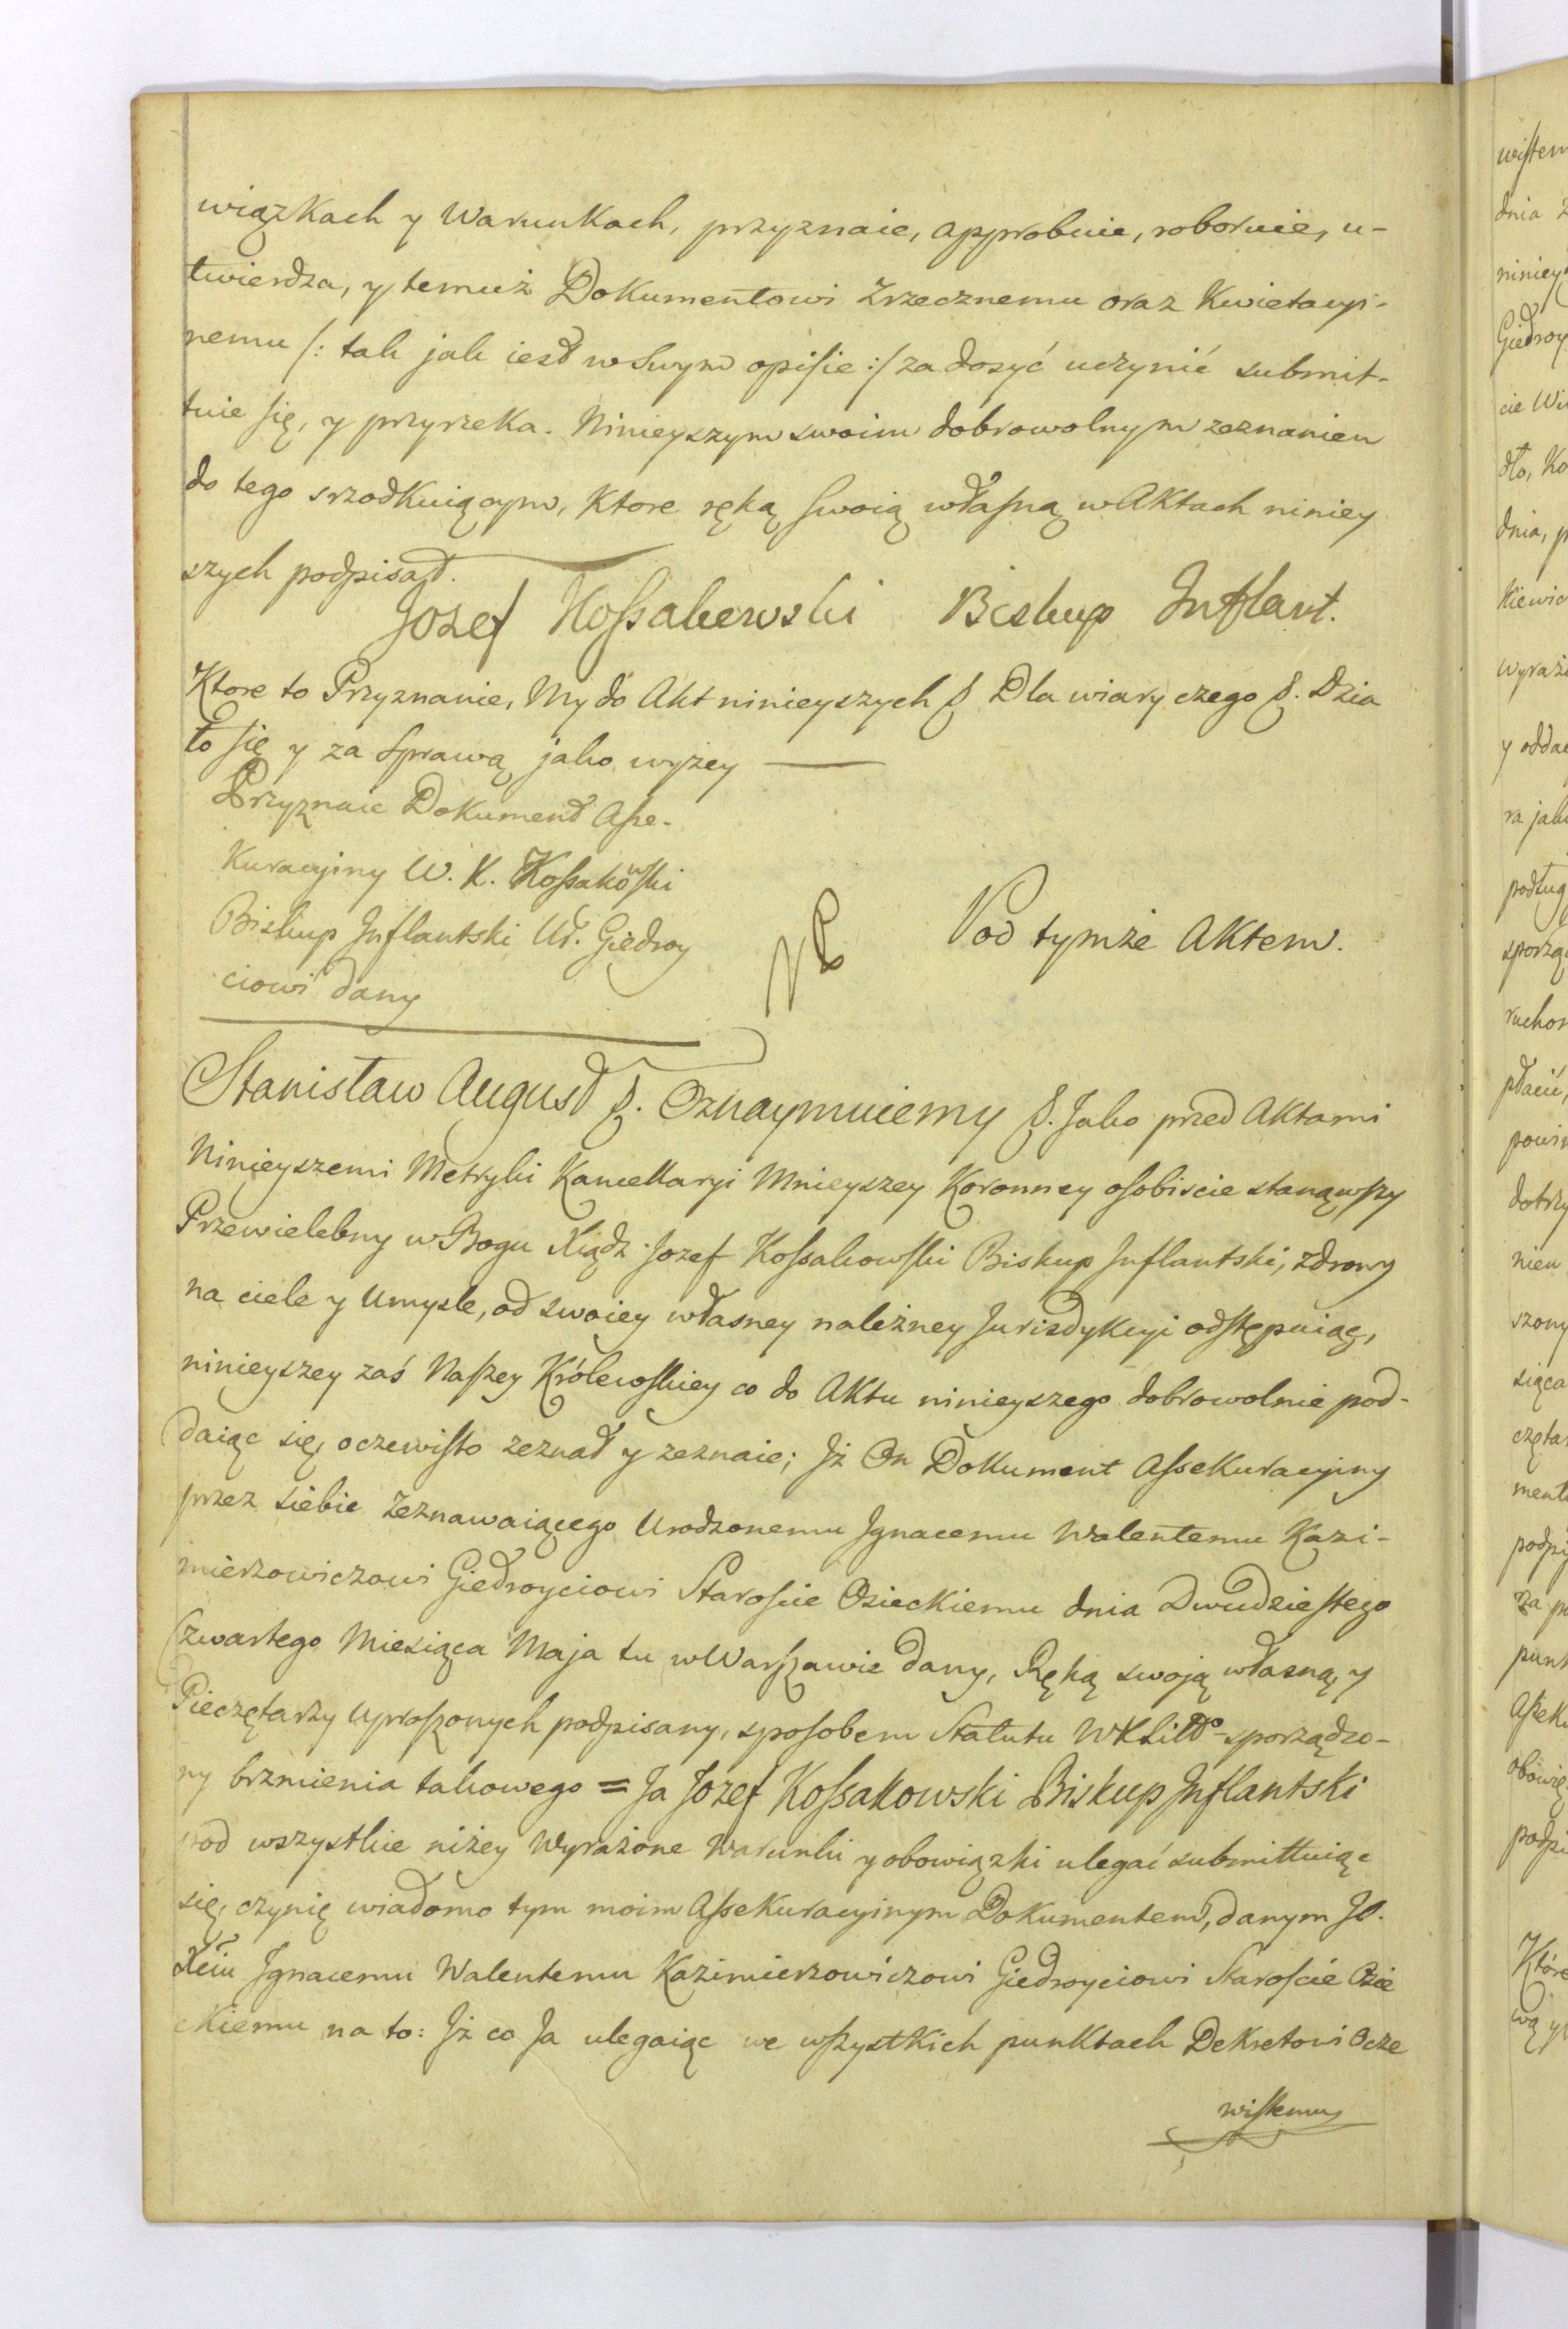 wiązkach y Warunkach, przyznaie, approbuie, roboruie, u-
twierdza, y temuż Dokumentowi Zrzecznemu oraz Kwietacyi-
nemu /: tak jak iest w Swym opisie :/ za dosyć uczynić submit-
tuie się, y przyrzeka. Ninieyszym swoim dobrowolnym zeznaniem
do tego srzodkuiącym, Ktore ręką swoią własną w Aktach niniey
szych podpisał.
Jozef Kossakowski Biskup Inflant.
Ktore to Przyznanie, My do Akt ninieyszych &. Dla wiary czego &. Dzia
ło się y za Sprawą jako wyżey
Przyznaie Dokument Asse-
Kuracyiny W. X. Kossakowski
Biskup Inflantski Ur. Giedroy
ciowi dany
Pod tymże Aktem.
Stanisław August &. Oznaymuiemy &. Jako przed Aktami
Ninieyszemi Metryki Kancellaryi Mnieyszey Koronney osobiscie stanąwszy
Przewielebny w Bogu Xiądz Jozef Kossakowski Biskup Inflantski, zdrowy
na ciele y Umysle, od swoiey własney należney Jurisdykcyi odstępuiąc,
ninieyszey zaś Naszey Królewskiey co do Aktu ninieyszego dobrowolnie pod-
daiąc się, oczewisto zeznał y zeznaie; Iż On Dokument Assekuracyiny
przez siebie Zeznawaiącego Urodzonemu Ignacemu Walentemu Kazi-
mierzowiczowi Giedroyciowi Staroscie Osieckiemu dnia Dwudziestego
Czwartego Miesiąca Maja tu w Warszawie dany, Ręką swoją własną, y
Pieczętarzy Uproszonych podpisany, sposobem Statutu WXLittgo sporządzo-
ny brzmienia takowego = Ja Jozef Kossakowski Biskup Inflantski
pod wszystkie niżey Wyrażone Warunki y obowiązki ulegać submittuiąc
się, czynię wiadomo tym moim Assekuracyinym Dokumentem, danym J.O.
Xciu Ignacemu Walentemu Kazimierzowiczowi Giedroyciowi Staroscie Osie
ckiemu na to: Iż co Ja ulegaiąc we wszystkich punktach Dekretowi Ocze
wistemu